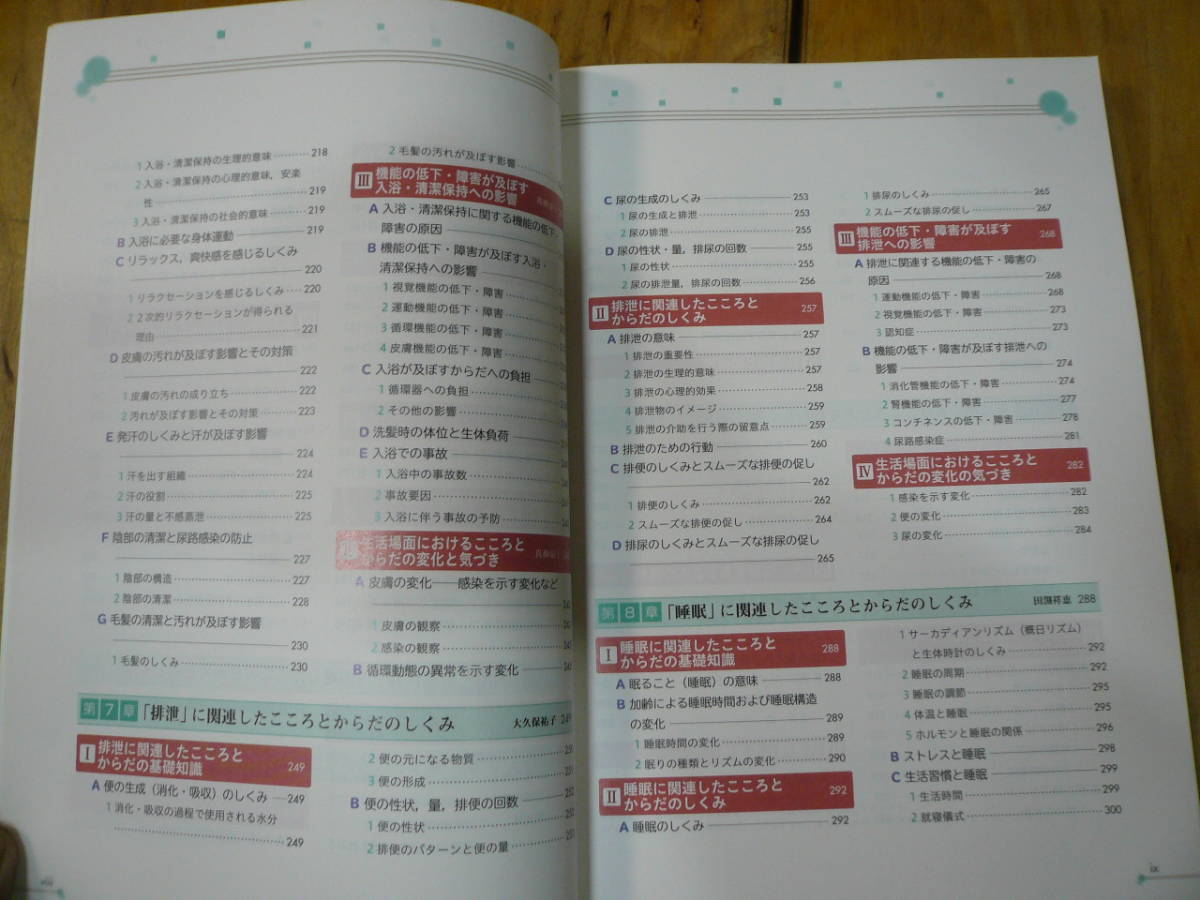 1 入浴・清潔保持の生理的意味 218
2 入浴・清潔保持の心理的意味，安楽
性 219
3 入浴・清潔保持の社会的意味 219
B 入浴に必要な身体運動 219
C リラックス，爽快感を感じるしくみ
220
1 リラクセーションを感じるしくみ 220
2 2次的リラクセーションが得られる
理由 221
D 皮膚の汚れが及ぼす影響とその対策
222
1 皮膚の汚れの成り立ち 222
2 汚れが及ぼす影響とその対策 223
E 発汗のしくみと汗が及ぼす影響
224
1 汗を出す組織 224
2 汗の役割 225
3 汗の量と不感蒸泄 225
F 陰部の清潔と尿路感染の防止
227
1 陰部の構造 227
2 陰部の清潔 228
G 毛髪の清潔と汚れが及ぼす影響
230
1 毛髪のしくみ 230
2 毛髪の汚れが及ぼす影響
III 機能の低下・障害が及ぼす
入浴・清潔保持への影響
A 入浴・清潔保持に関する機能の低下・
障害の原因
B 機能の低下・障害が及ぼす入浴・
清潔保持への影響
1 視覚機能の低下・障害
2 運動機能の低下・障害
3 循環機能の低下・障害
4 皮膚機能の低下・障害
C 入浴が及ぼすからだへの負担
1 循環器への負担
2 その他の影響
D 洗髪時の体位と生体負荷
E 入浴での事故
1 入浴中の事故数
2 事故要因
3 入浴に伴う事故の予防
IV 生活場面におけるこころと
からだの変化と気づき
A 皮膚の変化――感染を示す変化など
1 皮膚の観察
2 感染の観察
B 循環動態の異常を示す変化
第7章 「排泄」に関連したこころとからだのしくみ 大久保祐子 249
I 排泄に関連したこころと
からだの基礎知識 249
A 便の生成（消化・吸収）のしくみ 249
1 消化・吸収の過程で使用される水分
249
2 便の元になる物質
3 便の形成
B 便の性状，量，排便の回数
1 便の性状
2 排便のパターンと便の量
viii
C 尿の生成のしくみ 253
1 尿の生成と排泄 253
2 尿の排泄 255
D 尿の性状・量，排尿の回数 255
1 尿の性状 255
2 尿の排泄量，排尿の回数 256
II 排泄に関連したこころと
からだのしくみ 257
A 排泄の意味 257
1 排泄の重要性 257
2 排泄の生理的意味 257
3 排泄の心理的効果 258
4 排泄物のイメージ 259
5 排泄の介助を行う際の留意点 259
B 排泄のための行動 260
C 排便のしくみとスムーズな排便の促し
262
1 排便のしくみ 262
2 スムーズな排便の促し 264
D 排尿のしくみとスムーズな排尿の促し
265
1 排尿のしくみ 265
2 スムーズな排尿の促し 267
III 機能の低下・障害が及ぼす
排泄への影響 268
A 排泄に関連する機能の低下・障害の
原因 268
1 運動機能の低下・障害 268
2 視覚機能の低下・障害 273
3 認知症 273
B 機能の低下・障害が及ぼす排泄への
影響 274
1 消化管機能の低下・障害 274
2 腎機能の低下・障害 277
3 コンチネンスの低下・障害 278
4 尿路感染症 281
IV 生活場面におけるこころと
からだの変化の気づき 282
1 感染を示す変化 282
2 便の変化 283
3 尿の変化 284
第8章 「睡眠」に関連したこころとからだのしくみ 288
I 睡眠に関連したこころと
からだの基礎知識 288
A 眠ること（睡眠）の意味 288
B 加齢による睡眠時間および睡眠構造
の変化 289
1 睡眠時間の変化 289
2 眠りの種類とリズムの変化 290
II 睡眠に関連したこころと
からだのしくみ 292
A 睡眠のしくみ 292
1 サーカディアンリズム（概日リズム）
と生体時計のしくみ 292
2 睡眠の周期 292
3 睡眠の調節 295
4 体温と睡眠 295
5 ホルモンと睡眠の関係 296
B ストレスと睡眠 298
C 生活習慣と睡眠 299
1 生活時間 299
2 就寝儀式 300
ix